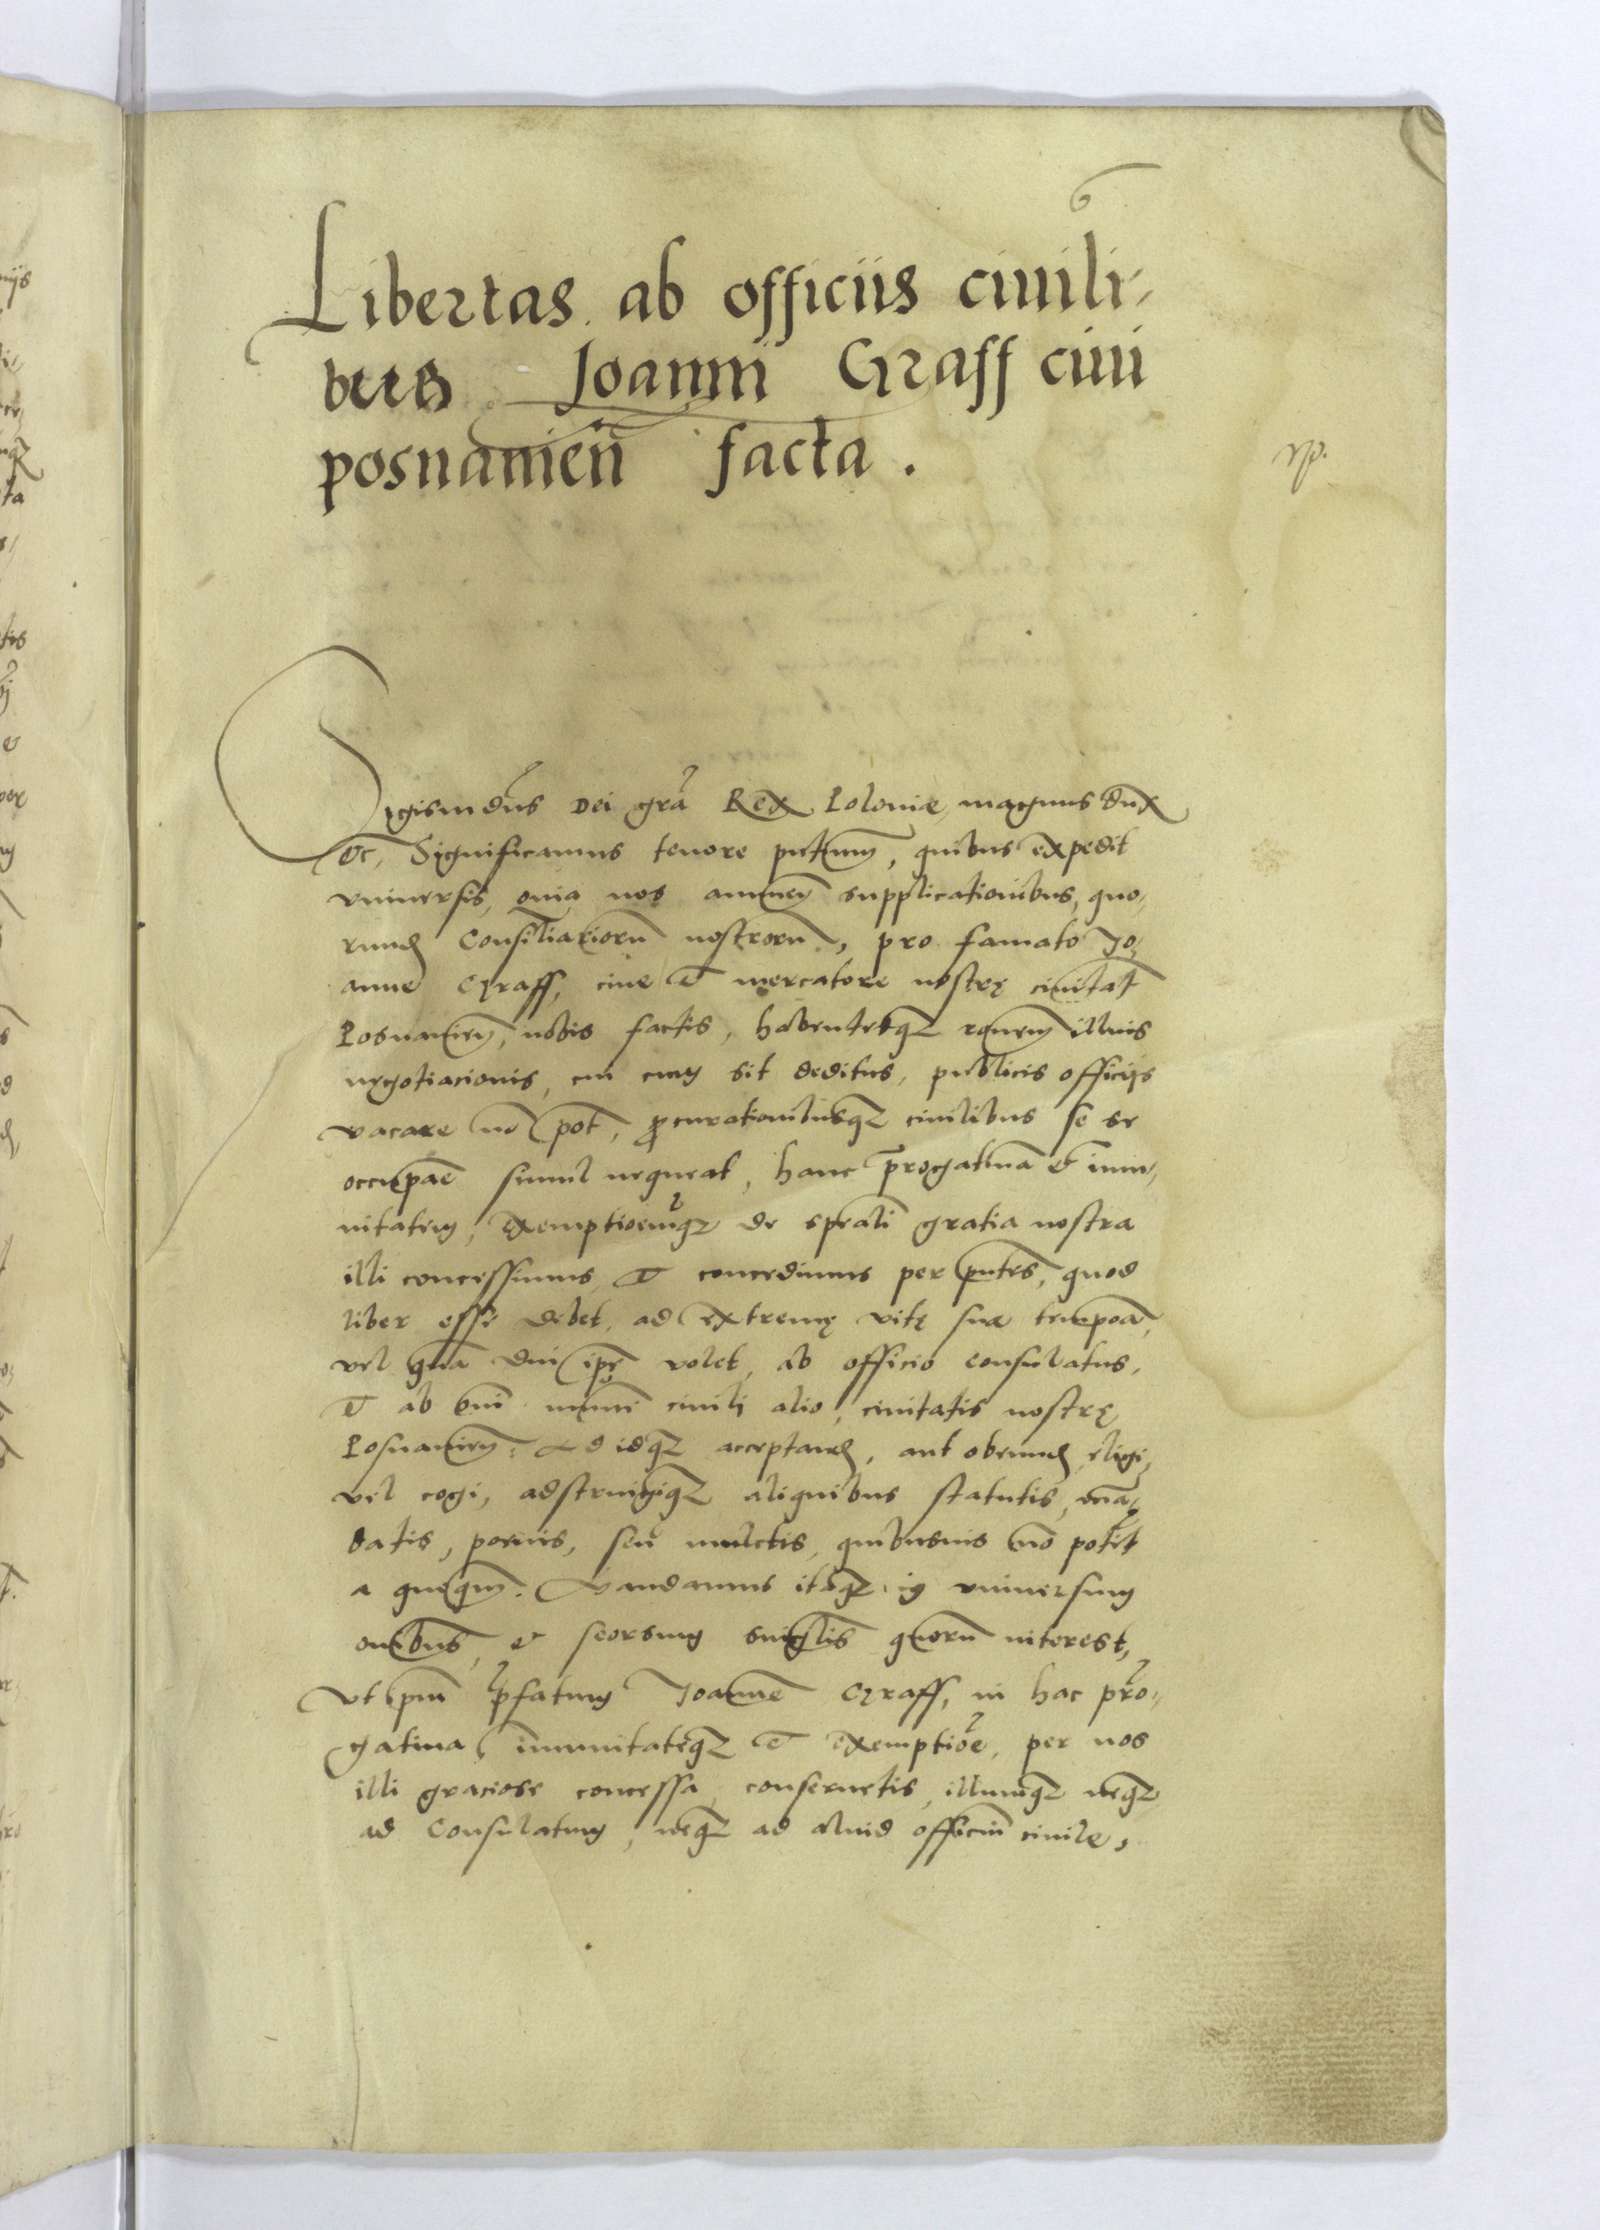 Libertas ab officiis ciuili-
bus Joanni Graff ciui
posnanien̄ facta.
Sigismūdus Dei gr̄a Rex Poloniæ, magnus dux
etc, Significamus tenore pn̄tium, quibus expedit
vniuersis, quia nos annuen̄ supplicationibus, quo-
rund Consiliariorū nostrorū, pro famato Jo-
anne Graff, ciue et mercatore nostrę ciuitat̄
Posnanien̄, nobis factis, habentesq3 rōnem illius
negotiacionis, cui cum sit deditus, publicis officijs
vacare nō pōt, procurationibusq3 ciuilibus se se
occupāe simul nequeat, hanc prerogatiuā et immu-
nitatem, exemptionemq3 de sp̄eali gratia nostra
illi concessimus, et concedimus per pn̄tes, quod
liber esse debet, ad extremę vitę suæ tempōa,
vel quā diu ip̄e volet, ab officio consulatus,
et ab om̄i munere ciuili alio, ciuitatis nostrę
Posnanien̄. Ad idq3 acceptand, aut obeund, eligi,
vel cogi, adstringiq3 aliquibus statutis, mā-
datis, poenis, seu mulctis, quibusuis nō poterit
a quoquam. Mandamus itaq3 in vniuersum
om̄ibus, et seorsum singulis quorū interest,
vt prefatum Joannē Graff, in hac prero-
gatiua, immunitateq3 et exemptiōe, per nos
illi graciose concessa, conseruetis, illumq3 neq3
ad Consulatum, neq3 ad aliud officiū ciuile,